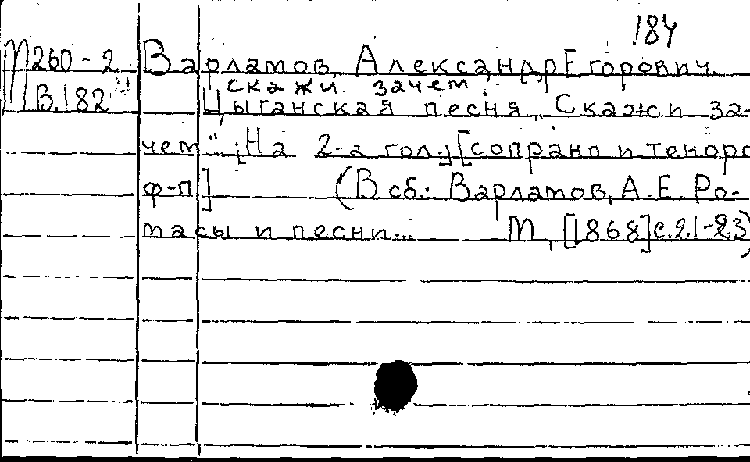 184
М260-2 Варламов, Александр Егорович.
скажи зачем
В.182 Цыганская песня „Скажи за-
чем". [На 2-а гол.] [сопрано и тенора
ф-п] (В сб.: Варламов, А.Е. Ро-
мансы и песни... М, [1868] с. 21-23)